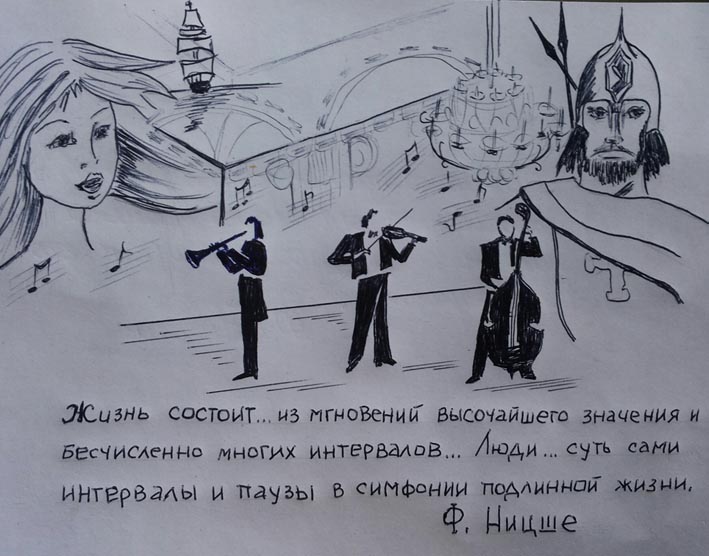 Жизнь состоит... из мгновений высочайшего значения и
бесчисленно многих интервалов... Люди... суть сами
интервалы и паузы в симфонии подлинной жизни.
Ф. Ницше